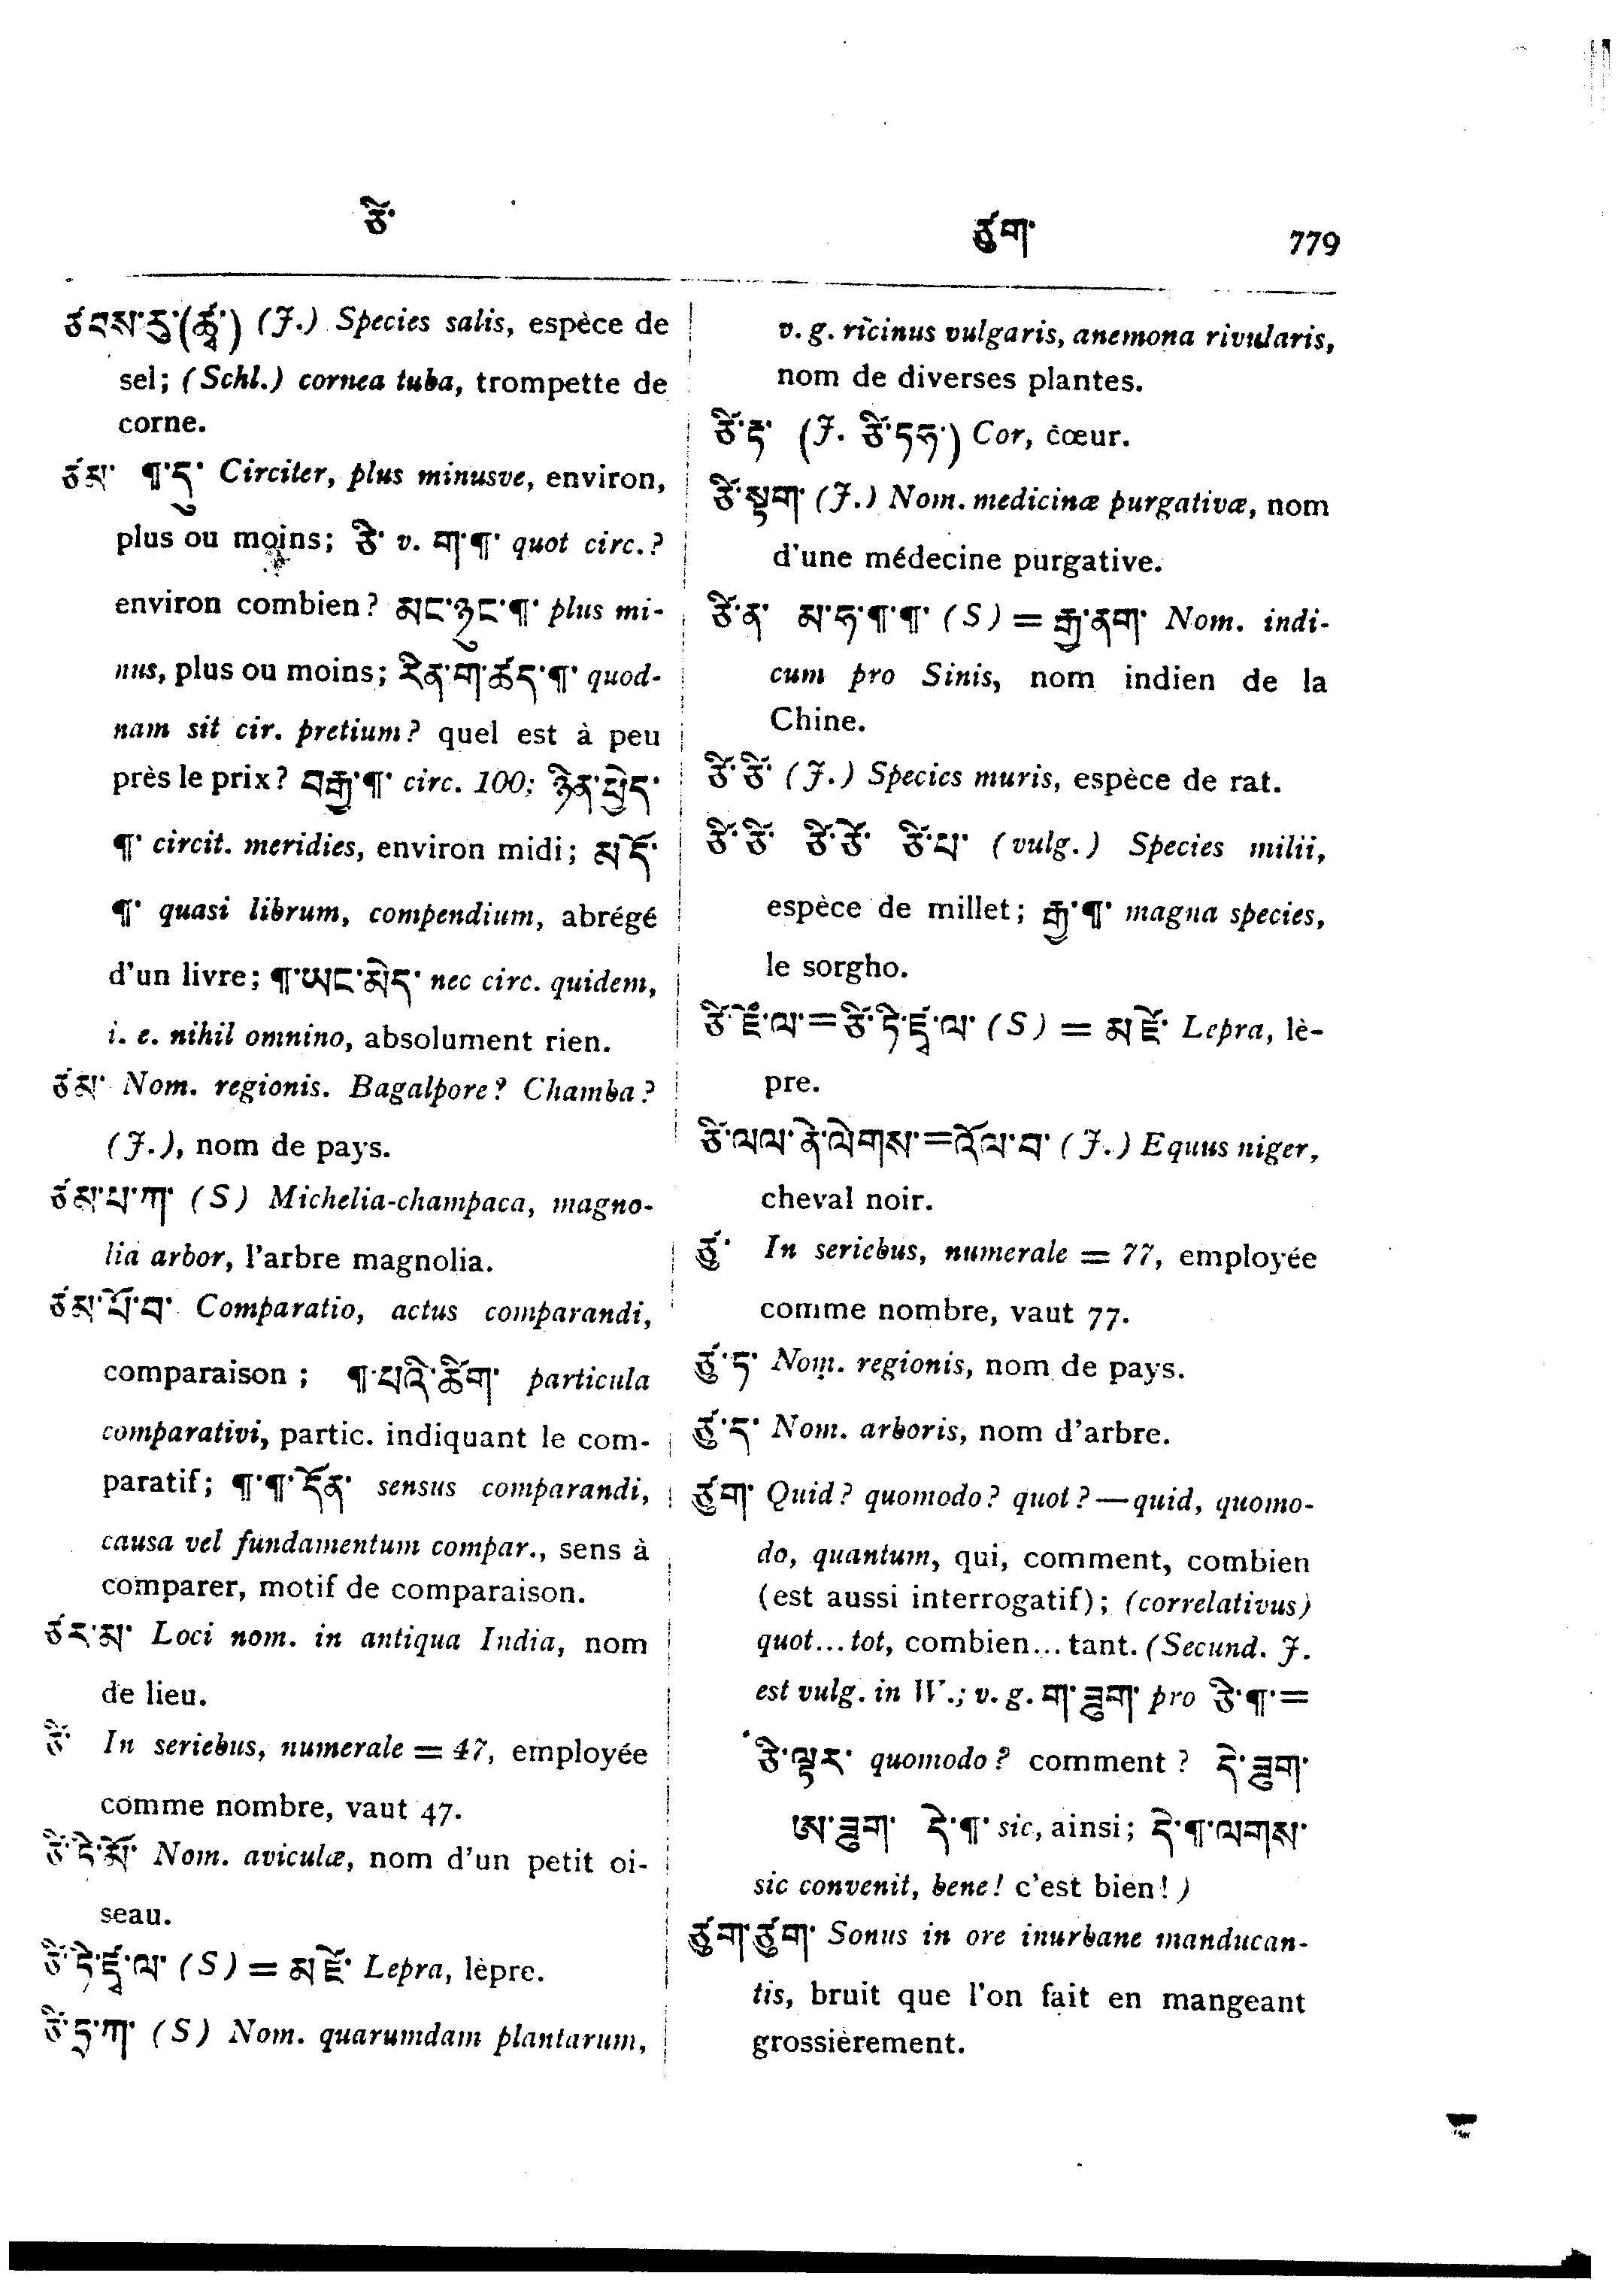 ཙི་
ཙུག་ 779
ཙབས་རུ་(ཚྭ་) (J.) Species salis, espèce de
sel; (Schl.) cornea tuba, trompette de
corne.
ཙམ་ ¶་དུ་ Circiter, plus minusve, environ,
plus ou moins; ཅི་ v. ག་¶་ quot circ.?
environ combien? མང་ཉུང་¶་ plus mi-
nus, plus ou moins; རིན་ག་ཚད་¶་ quod-
nam sit cir. pretium? quel est à peu
près le prix? བརྒྱ་¶་ circ. 100; ཉིན་ཕྱེད་
¶་ circit. meridies, environ midi; མདོ་
¶་ quasi librum, compendium, abrégé
d'un livre; ¶་ཡང་མེད་ nec circ. quidem,
i. e. nihil omnino, absolument rien.
ཙམ་ Nom. regionis. Bagalpore? Chamba?
(J.), nom de pays.
ཙམ་པ་ཀ་ (S) Michelia-champaca, magno-
lia arbor, l'arbre magnolia.
ཙམ་པོ་བ་ Comparatio, actus comparandi,
comparaison; ¶་པའི་ཚིག་ particula
comparativi, partic. indiquant le com-
paratif; ¶་¶་དོན་ sensus comparandi,
causa vel fundamentum compar., sens à
comparer, motif de comparaison.
ཙར་མ་ Loci nom. in antiqua India, nom
de lieu.
ཙི་ In seriebus, numerale = 47, employée
comme nombre, vaut 47.
ཙི་དེ་མོ་ Nom. aviculæ, nom d'un petit oi-
seau.
ཙི་ཏེ་ཛྭ་ལ་ (S) = མཛེ་ Lepra, lèpre.
ཙི་ཏྲ་ཀ་ (S) Nom. quarumdam plantarum,
v. g. ricinus vulgaris, anemona rivularis,
nom de diverses plantes.
ཙི་ཏ་ (J. ཙི་ཏཏ་) Cor, cœur.
ཙི་སྟག་ (J.) Nom. medicinæ purgativæ, nom
d'une médecine purgative.
ཙི་ན་ མ་ཧ་¶་¶་ (S) = རྒྱ་ནག་ Nom. indi-
cum pro Sinis, nom indien de la
Chine.
ཙི་ཙི་ (J.) Species muris, espèce de rat.
ཙི་ཙི་ ཙི་ཙེ་ ཙི་པ་ (vulg.) Species milii,
espèce de millet; རྒྱ་¶་ magna species,
le sorgho.
ཙི་ཛཾ་ལ་=ཙི་ཏེ་ཛྭ་ལ་ (S) = མཛེ་ Lepra, lè-
pre.
ཙི་ལལ་ནེ་ལེགས་=འོལ་བ་ (J.) Equus niger,
cheval noir.
ཙུ་ In seriebus, numerale = 77, employée
comme nombre, vaut 77.
ཙུ་ཏ་ Nom. regionis, nom de pays.
ཙུ་ད་ Nom. arboris, nom d'arbre.
ཙུག་ Quid? quomodo? quot?—quid, quomo-
do, quantum, qui, comment, combien
(est aussi interrogatif); (correlativus)
quot... tot, combien... tant. (Secund. J.
est vulg. in W.; v. g. ག་ཟུག་ pro ཅི་¶་=
ཅི་ལྟར་ quomodo? comment? དེ་ཟུག་
ཨ་ཟུག་ དེ་¶་ sic, ainsi; དེ་¶་ལགས་
sic convenit, bene! c'est bien!)
ཙུག་ཙུག་ Sonus in ore inurbane manducan-
tis, bruit que l'on fait en mangeant
grossièrement.